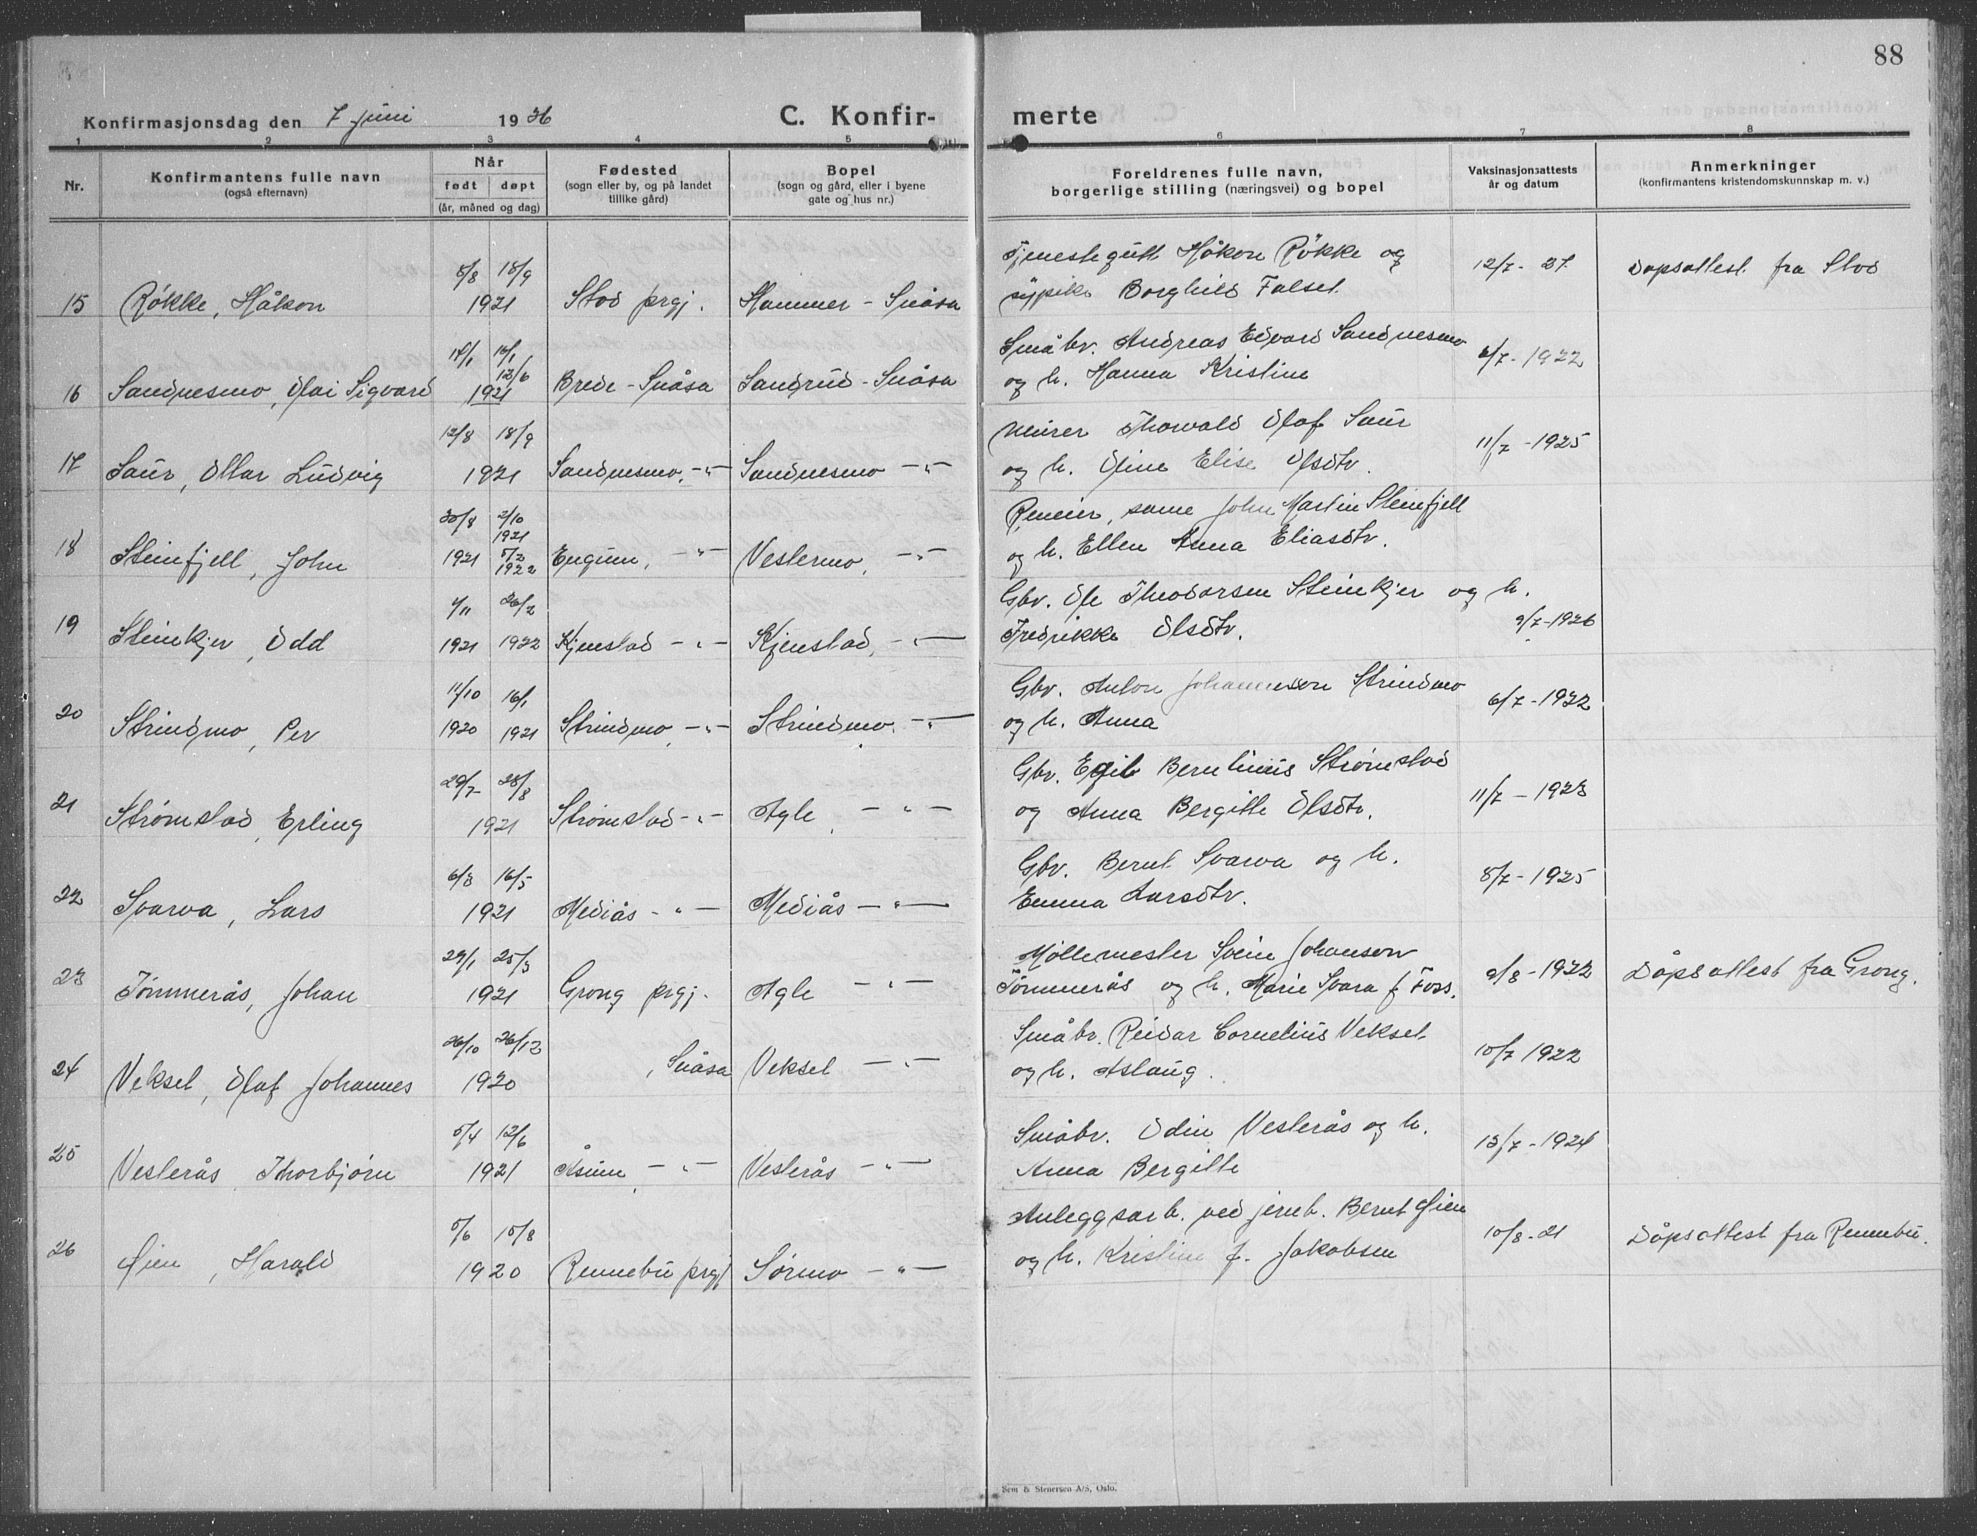 88
Konfirmasjonsdag den 7 juni 1936
C. Konfir- merte
1 2 3 4 5 6 7 8
Nr.
Konfirmantens fulle navn
(også efternavn)
Når
født døpt
(år, måned og dag)
Fødested
(sogn eller by, og på landet
tillike gård)
Bopel
(sogn og gård, eller i byene
gate og hus nr.)
Foreldrenes fulle navn,
borgerlige stilling (næringsvei) og bopel
Vaksinasjonsattests
år og datum
Anmerkninger
(konfirmantens kristendomskunnskap m. v.)
8/8 18/9 Tjenestegutt Håkon Røkke og 12/7 - 27. Dåpsattest fra Stod
15 Røkke, Håkon 1921 Stod prgj. Hammer - Snåsa sypike Borghild Falset
17/1 16/1 Småbr. Andreas Edvard Sandnesmo 6/7 - 1922
12/6
16 Sandnesmo, Olai Sigvard 1921 Brede - Snåsa Sandrud - Snåsa og h. Hanna Kristine
12/8 18/9 Murer Thorvald Olaf Saur 11/7 - 1925
17 Saur, Ottar Ludvig 1921 Sandnesmo, -"- Sandnesmo -"- og h. Oline Elise Olsdtr.
30/8 2/10 Reneier, same John Martin Steinfjell
1921
18 Steinfjell, John 1921 5/3 1922 Engum, -"- Vestermo, -"- og h. Ellen Anna Eliasdtr.
1/11 26/2 Gbr. Ole Theodorsen Steinkjer og h.
19 Steinkjer, Odd 1921 1922 Kjenstad -"- Kjenstad, -"- Fredrikke Olsdtr. 9/7-1926
11/10 16/1 Gbr. Anton Johannesson Strindmo 6/7 - 1922
20 Strindmo, Per 1920 1921 Strindmo, -"- Strindmo. -"- og h. Anna
29/7 28/8 Gbr. Egil Berntinius Strømstad 11/7 - 1923
21 Strømstad, Erling 1921 Strømstad -"- Agle -"- og Anna Bergitte Olsdtr.
6/3 16/5 Gbr. Bernt Svarva og h. 8/7 - 1925
22 Svarva, Lars 1921 Mediås -"- Mediås -"- Emma Larsdtr.
29/1 25/3 Møllemester Svein Johanson 9/8 - 1922 Dåpsattest fra Grong.
23 Tømmerås, Johan 1921 Grong prgj. Agle -"- Tømmerås og h. Marie Svara f. Foss.
26/10 26/12 Småbr. Reidar Cornelius Veksel 10/7 1922
24 Veksel, Olaf Johannes 1920 , Snåsa Veksel -"- og h. Aslaug.
5/4 12/6 Småbr. Odin Vesterås og h. 13/7 - 1924
25 Vesterås, Thorbjørn 1921 Åsum, -"- Vesterås -"- Anna Bergitte
5/6 15/8 Anleggsarb. ved jernb. Bernt Øien 10/8 - 21 Dåpsattest fra Rennebu.
26 Øien, Harald 1920 Rennebu prgj Sørmo -"- og h. Kristine f. Jakobsen
Sem & Stenersen A/S, Oslo.